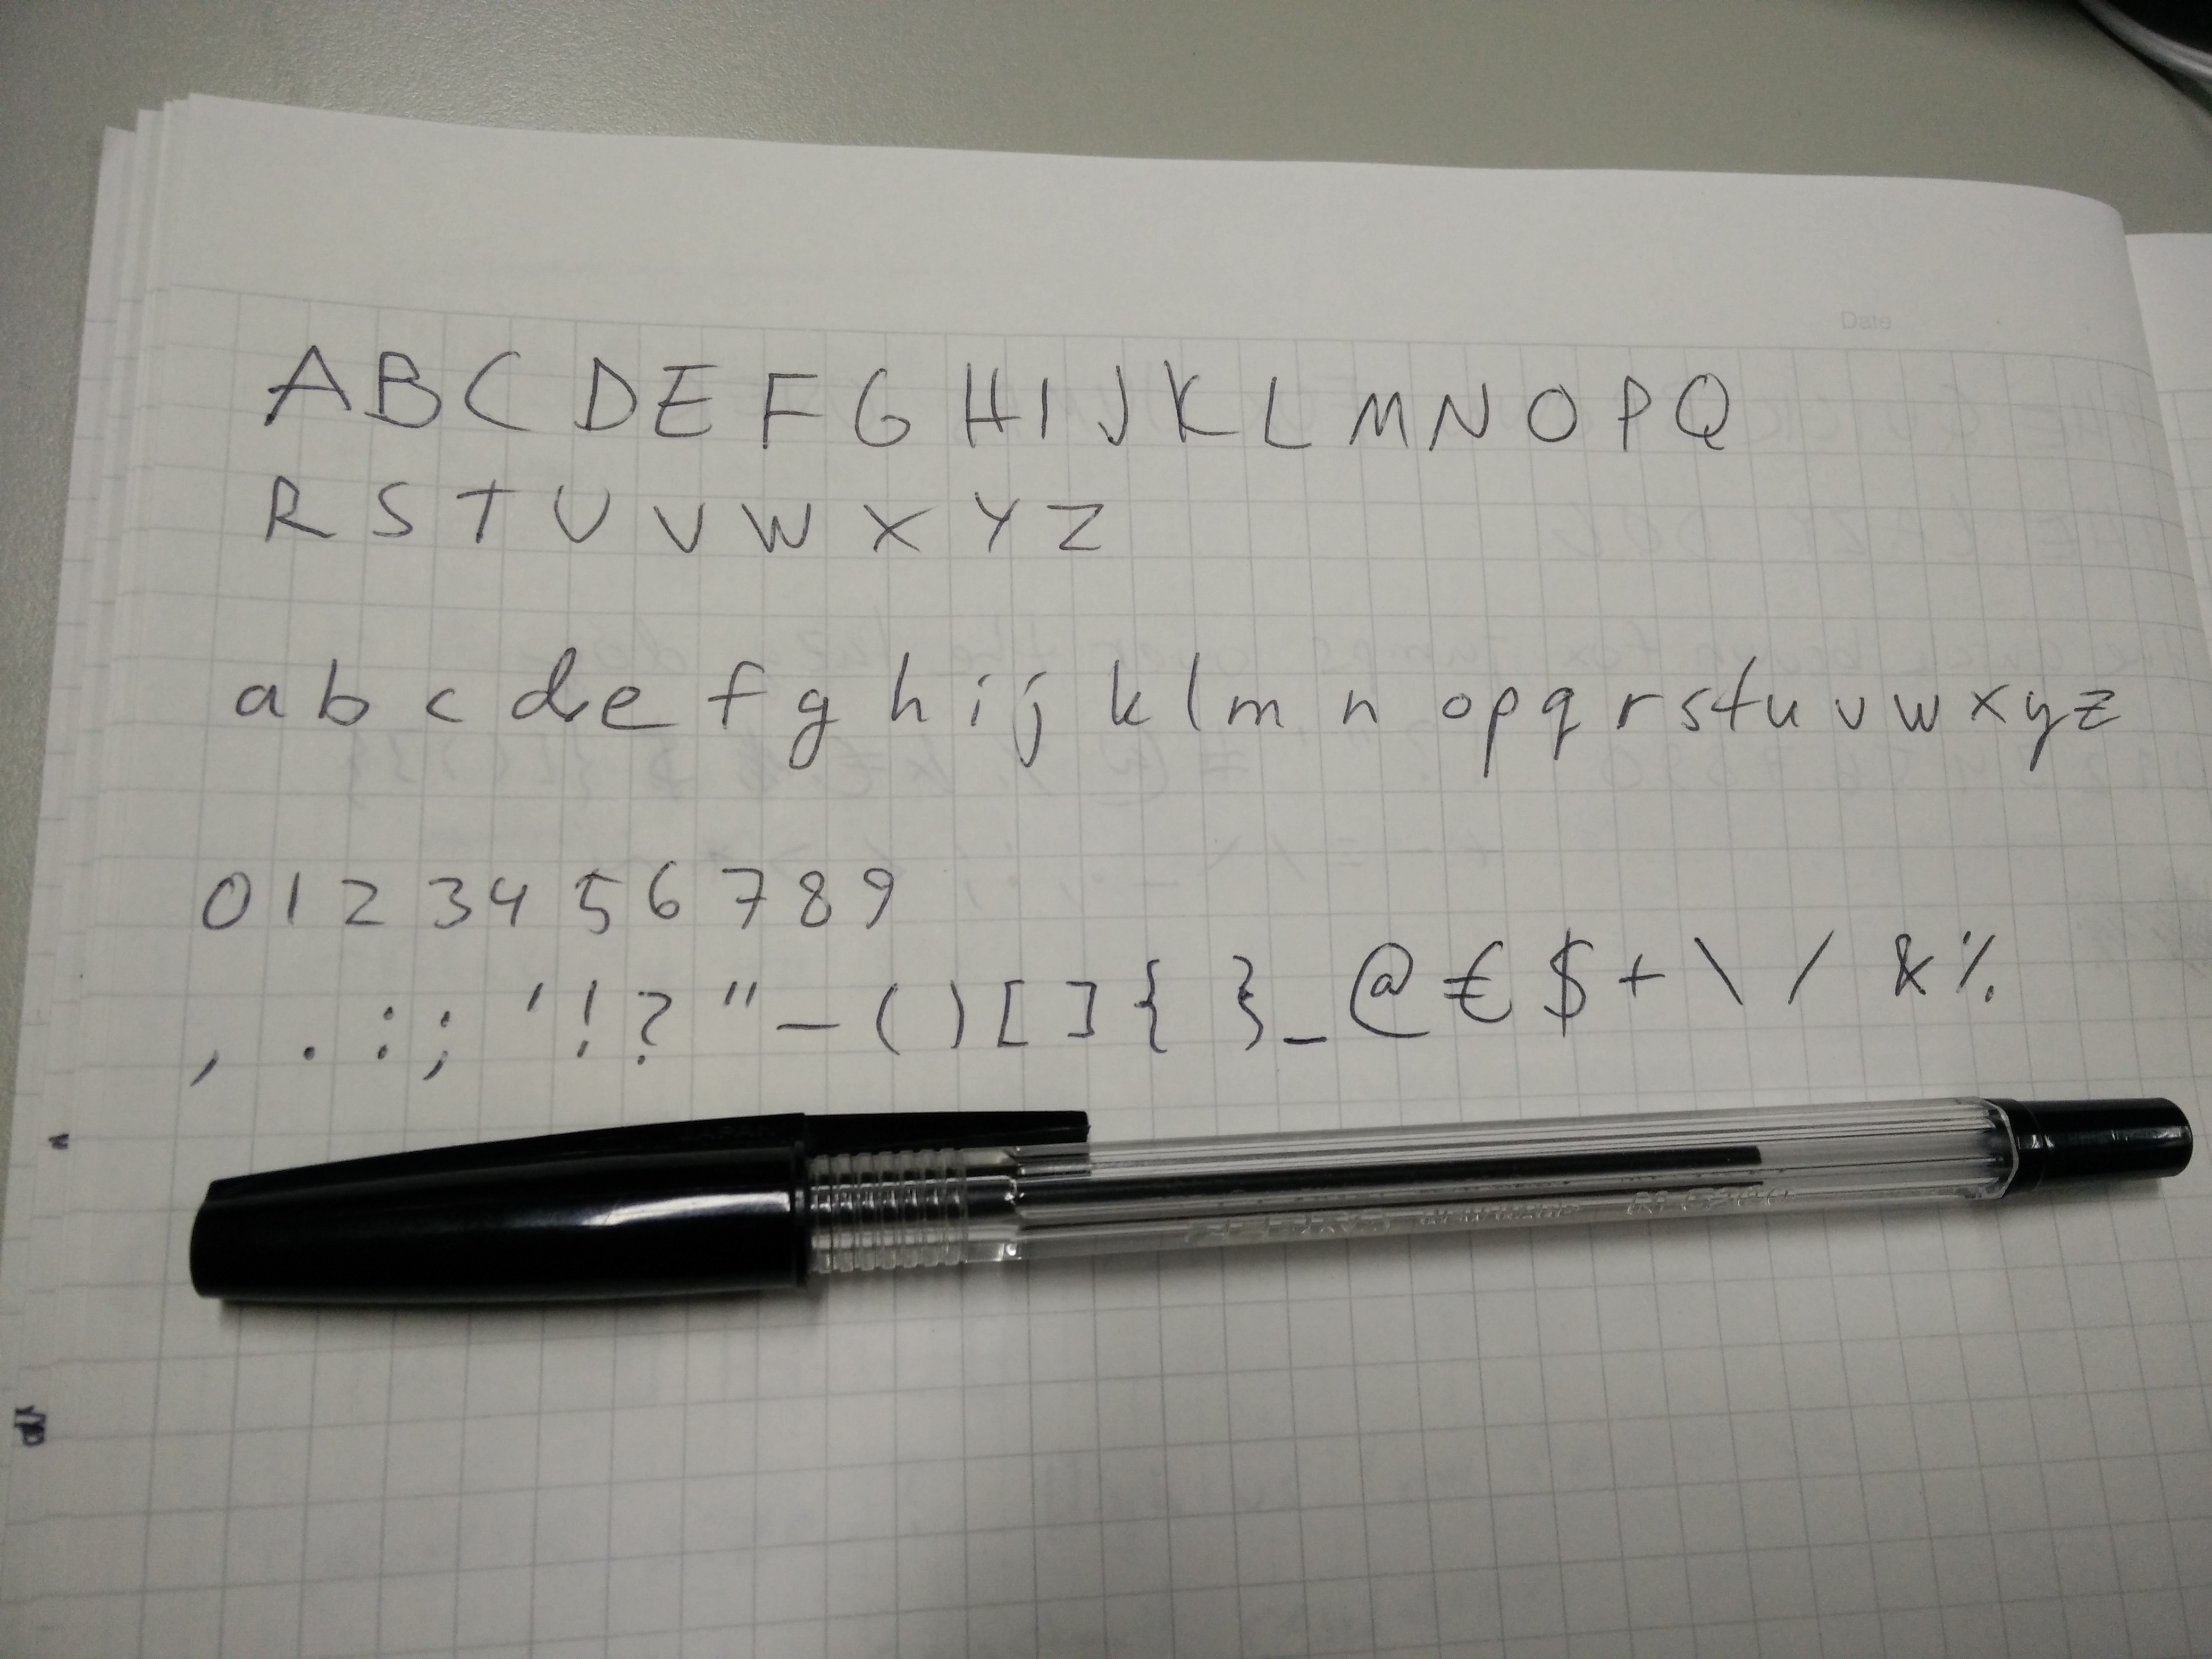 Date
A B C D E F G H I J K L M N O P Q
R S T U V W X Y Z
a b c d e f g h i j k l m n o p q r s t u v w x y z
0 1 2 3 4 5 6 7 8 9
, . : ; ' ! ? " - ( ) [ ] { } _ @ € $ + \ / & %
JAPAN